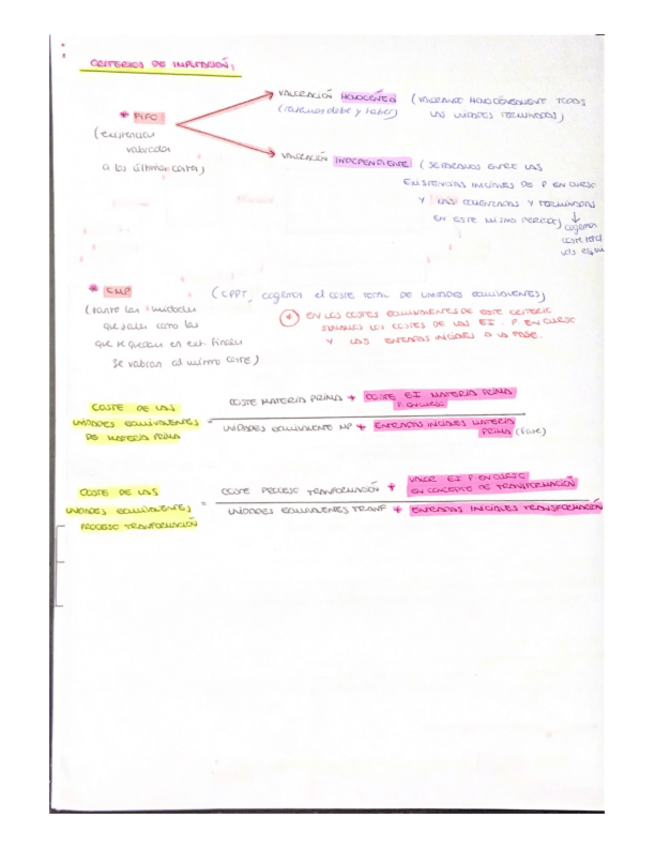 CRITERIOS DE IMPUTACIÓN:
* FIFO
(existencias
valoradas
a los últimos costes)
VALORACIÓN HOMOGÉNEA (VALORANDO HOMOGÉNEAMENTE TODAS
LAS UNIDADES TERMINADAS)
(rasamos debe y haber)
VALORACIÓN INDEPENDIENTE (SEPARAMOS ENTRE LAS
EXISTENCIAS INICIALES DE P EN CURSO
Y LAS COMENZADAS Y TERMINADAS
EN ESTE MISMO PERIODO)
↓
cogemos
coste total
* CMP
(tanto las unidades
que salen como las
que se quedan en ext. finales
se valoran al mismo coste)
(CPPT, cogemos el coste total de unidades equivalentes)
* EN LOS COSTES EQUIVALENTES DE ESTE CRITERIO
SUMAMOS LOS COSTES DE LAS EI. P EN CURSO
Y LAS ENTRADAS INICIALES A LA FASE.
COSTE DE LAS
UNIDADES EQUIVALENTES
DE MATERIA PRIMA
=
COSTE MATERIA PRIMA + COSTE EI MATERIA PRIMA
P. EN CURSO
UNIDADES EQUIVALENTE MP + ENTRADAS INICIALES MATERIA
PRIMA (fase)
COSTE DE LAS
UNIDADES EQUIVALENTES
PROCESO TRANFORMACIÓN
=
COSTE PROCESO TRANFORMACIÓN + VALOR EI P EN CURSO
EN CONCEPTO DE TRANSFORMACIÓN
UNIDADES EQUIVALENTES TRANF + ENTRADAS INICIALES TRANSFORMACIÓN